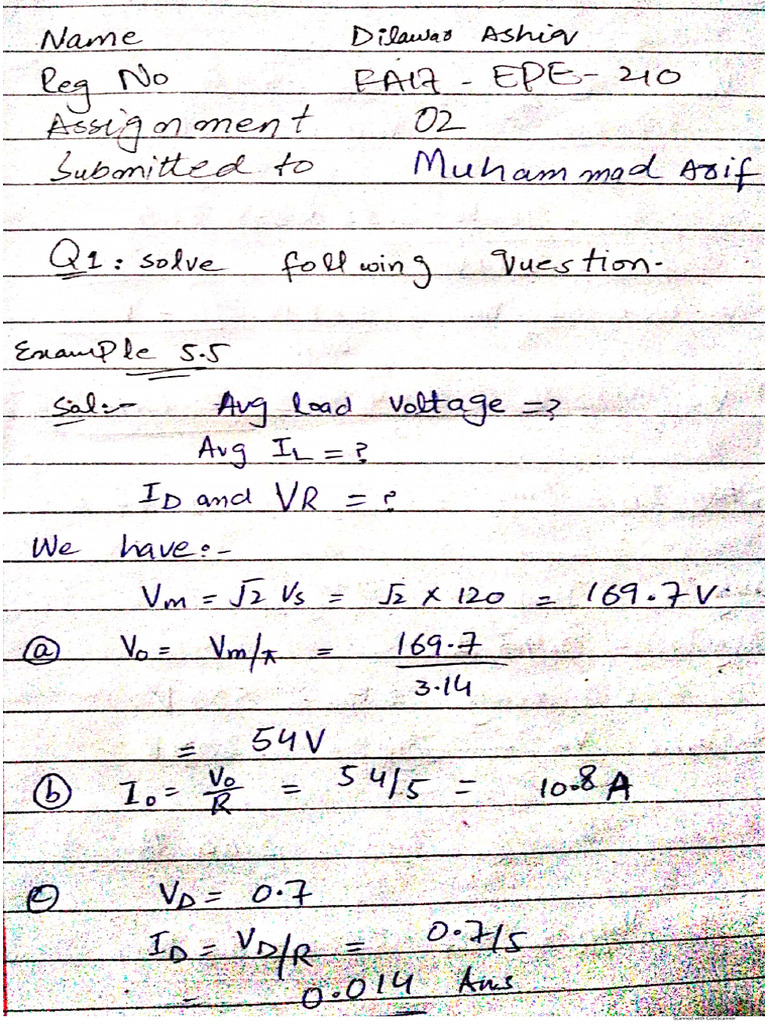 Name Dilawar Ashiq
Reg No FA17 - EPE - 210
Assignment 02
Submitted to Muhammad Asif
Q1: solve following question.
Example 5.5
Sol:- Avg load voltage = ?
Avg IL = ?
ID and VR = ?
We have:-
Vm = √2 Vs = √2 × 120 = 169.7 V
(a) Vo = Vm/π = 169.7 / 3.14
= 54V
(b) Io = Vo/R = 54/5 = 10.8 A
(c) VD = 0.7
ID = VD/R = 0.7/5
= 0.014 Ans
Scanned with CamScanner